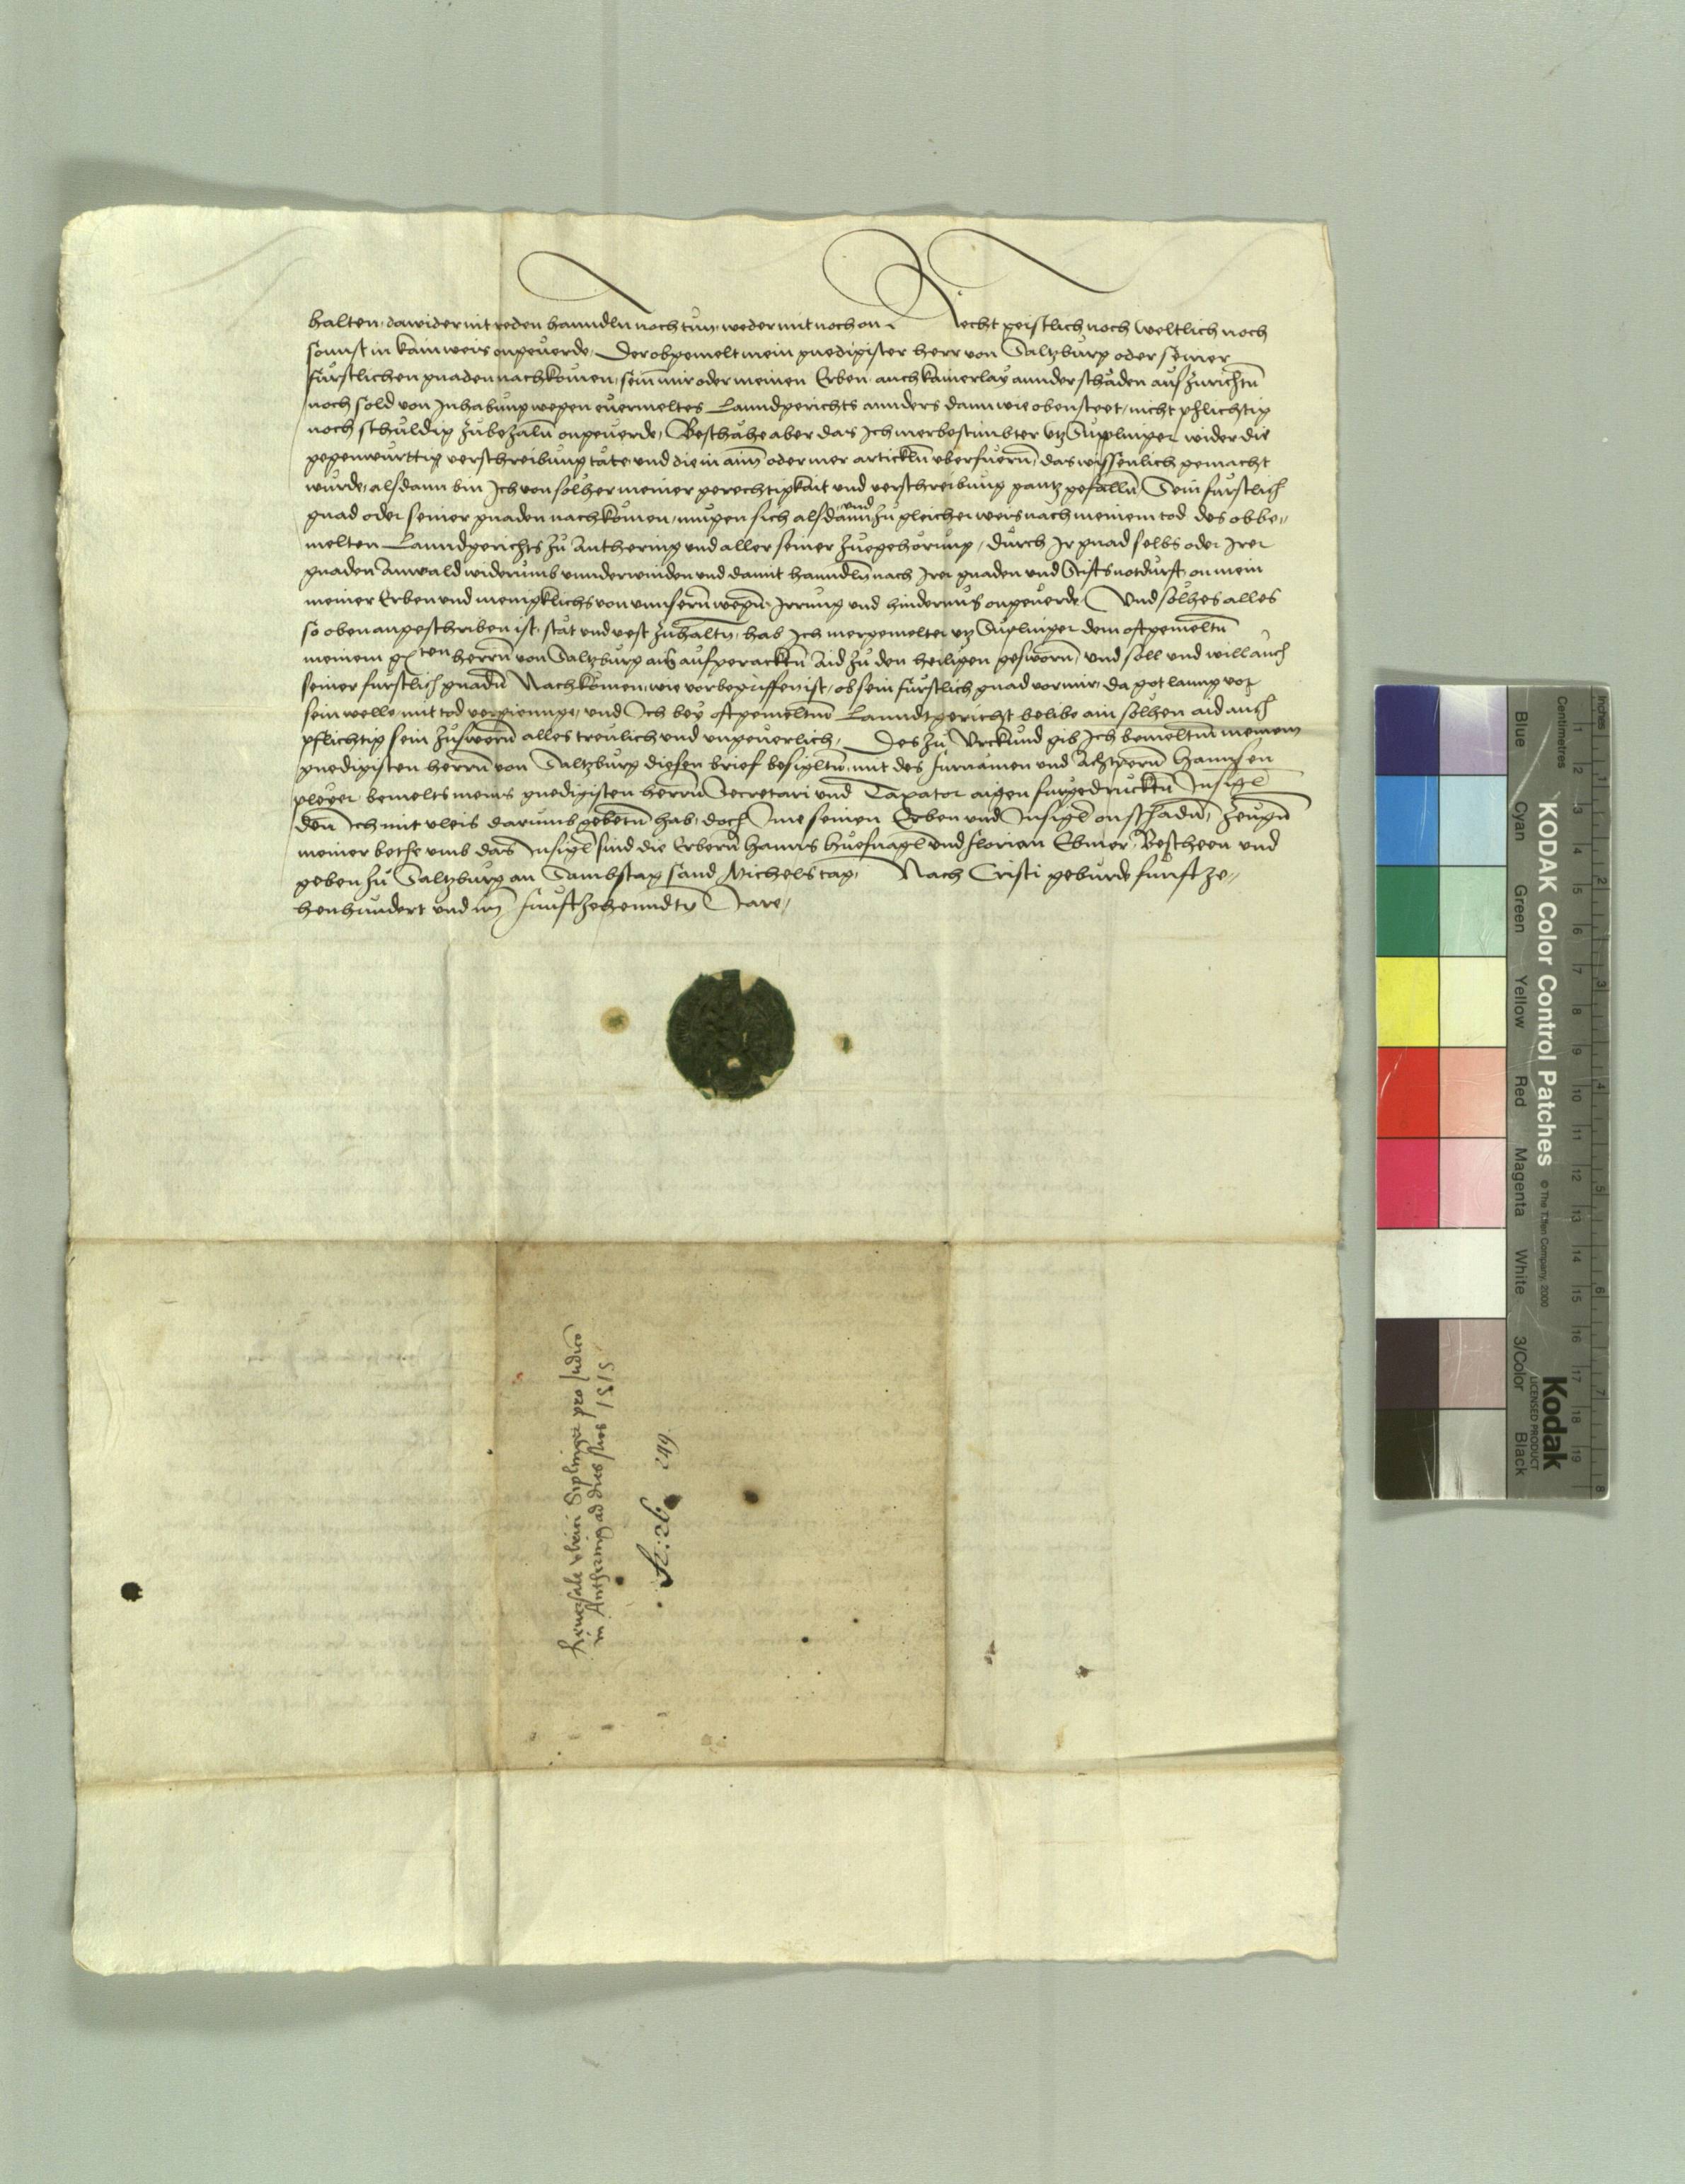 halten, dawider nit reden hanndln noch tun, weder mit noch on Recht geistlich noch weltlich noch
sonnst in kain weis ongeuerde, Der obgemelt mein gnedigister herr von Saltzburg oder seiner
fürstlichen gnaden nachkomen, sein mir oder meinen Erben auch kainerlay annder schäden auszurichtn̄
noch sold von Inhabung wegen vermeltes Lanndgerichts annders dann wie oben steet, nicht phlichtig
noch schuldig zubezaln̄ ongeuerde, Beschähe aber das Ich merbestimbter Utz Suplinger wider die
gegenwürttig verschreibung täte und die in aim oder mer artickln̄ uberfuern̄, das wissenlich gemacht
wurde, alsdann bin Ich von solher meiner gerechtigkait und verschreibung gantz gefalln̄ Sein fürstlich
gnad oder seiner gnaden nachkomen, mugen sich alsdann und zu gleicher weis nach meinem tod des obbe-
melten Lanndgerichts zu Anthering und aller seiner zuegehörung, durch Ir gnad selbs oder Irer
gnaden Anwald widerumb unnderwinden und damit hanndln̄ nach Irer gnaden und Stifts notdurft, on mein
meiner Erben und menigklichs von unnsern̄ wegn̄, Irrung und hindernus ongeuerde, Und solhes alles
so oben angeschriben ist, stät und vest zuhaltn̄, hab Ich mergemelter Utz Suplinger dem oftgemeltn̄
meinem gten herrn̄ von Saltzburg ain aufgeracktn̄ Aid zu den heiligen gesworn̄, und soll und will auch
seiner fürstlich gnadn̄ Nachkomen, wie vorbegriffen ist, ob sein fürstlich gnad vor mir, da got lanng vor
sein welle, mit tod vergiennge, und Ich bey oftgemeltm̄ Lanndtgericht belibe ain solhen aid auch
phlichtig sein zusweren̄ alles treulich und ungeuerlich, Des zu Urckund gib Ich bemeltm̄ meinem
gnedigisten herrn̄ von Saltzburg diesen brief besigltn̄, mit des furnämen und Achtpern̄ Hannsen
pleyer bemelts meins gnedigisten herrn̄ Secretari und Taxator aigen furgedrucktn̄ Insigl
den Ich mit vleis darumb gebetn̄ hab, doch Ime seinen Erben und Insigl on schadn̄, Zeugn̄
meiner bethe umb das Insigl sind die Erbern̄ Hanns Huefnagl und Florian Ebmer, Bescheen und
geben zu Saltzburg an Sambstag sand Michels tag, Nach Cristi geburde funftze-
henhundert und im funftzehenndtn̄ Jare,
Reuersale Vlrici Siplinger pro Judico
in Anthering ad dies suos 1515